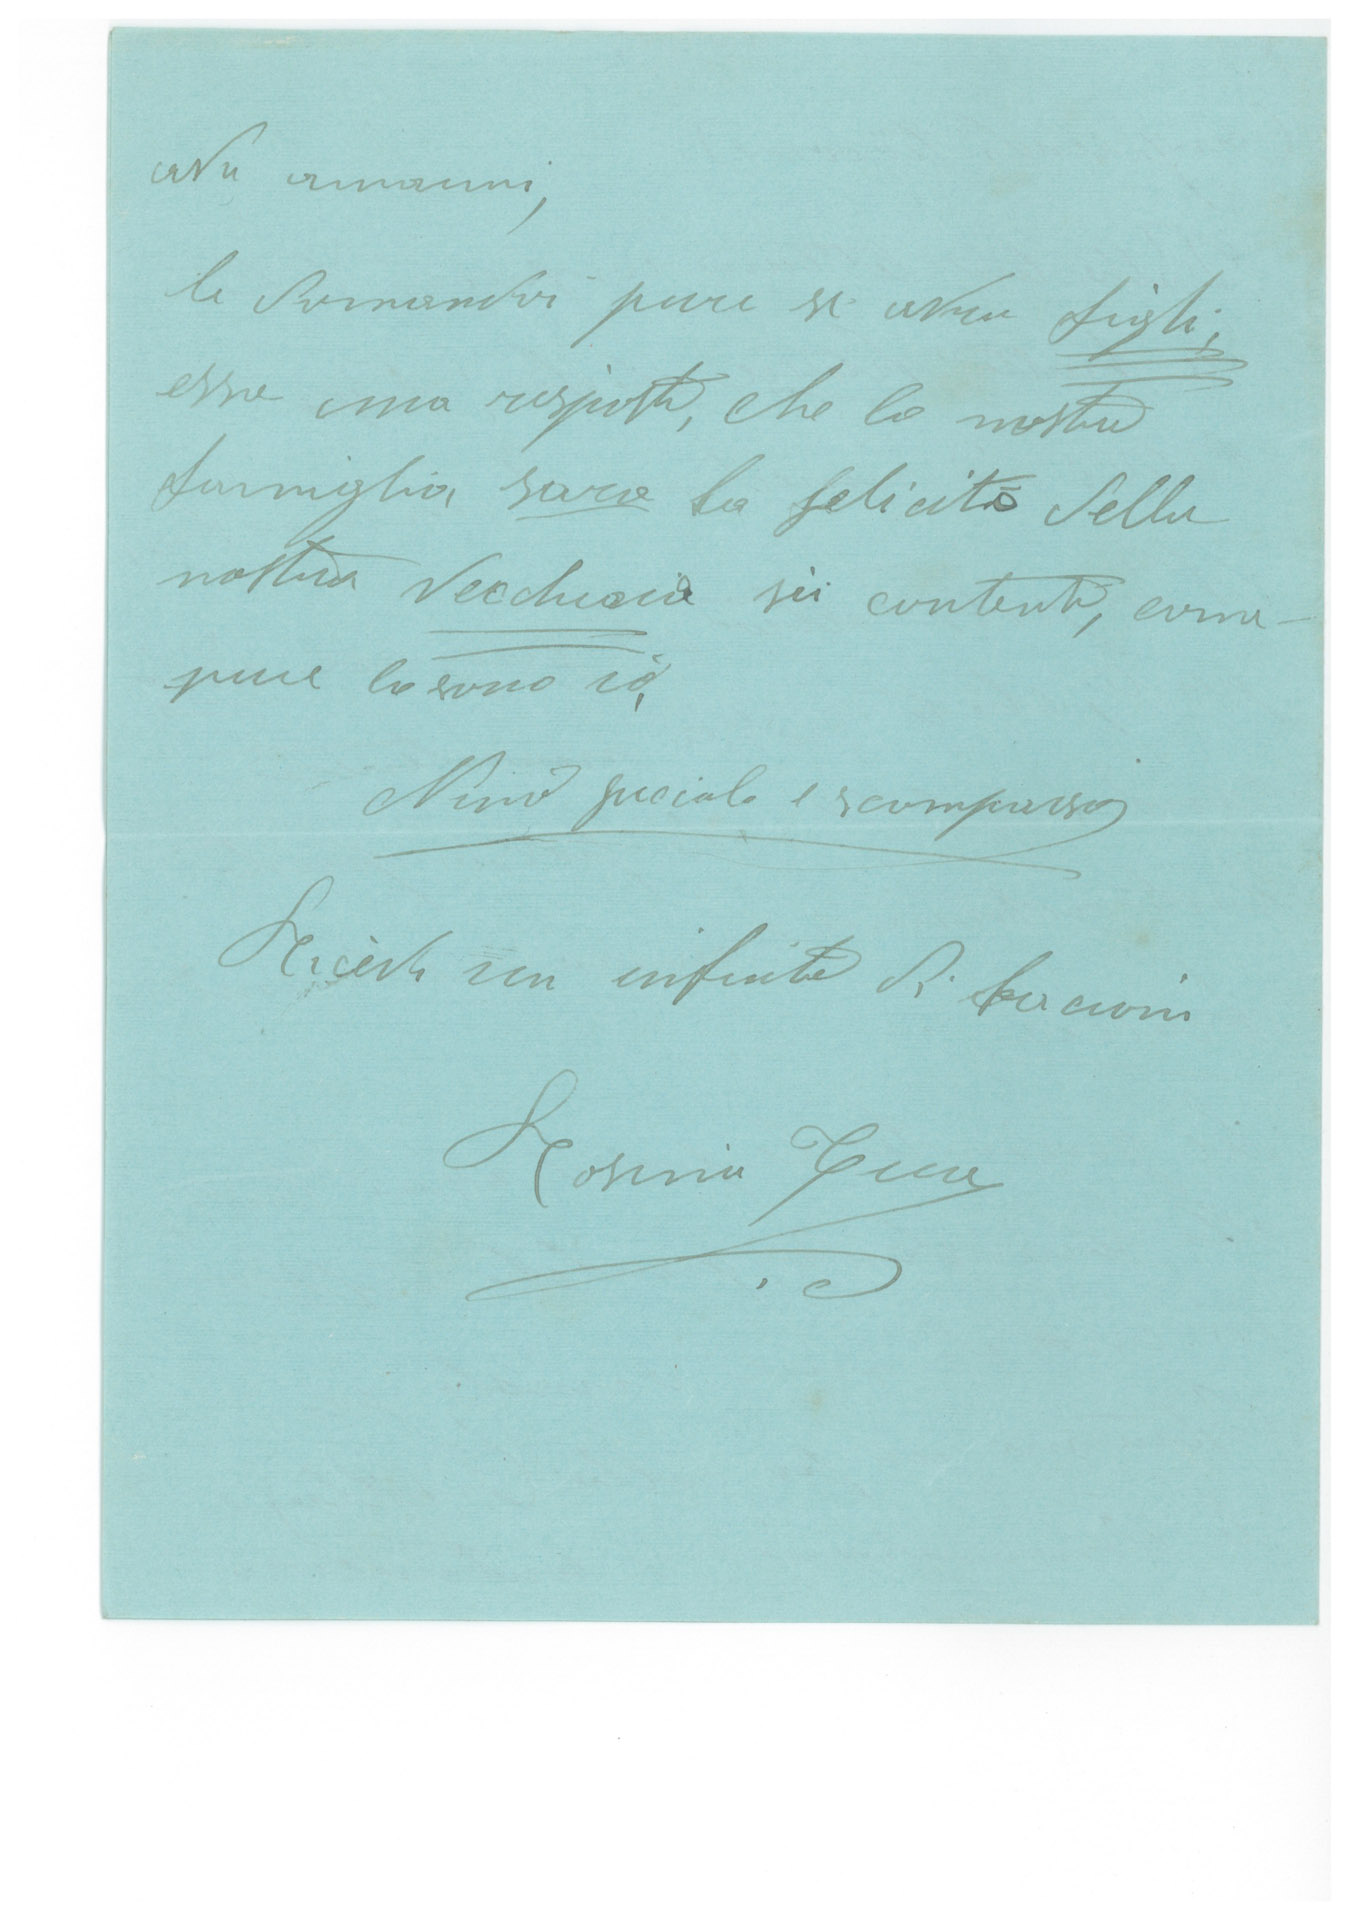 le domandai pure se avrà figli;
essa una risposta, che la nostra
famiglia, sara la felicità della
nostra Vecchiaia sii contenta, come
pure lo sono io,
Nino e scomparso
Ricevi un infinità di bacioni
Rosinia Tua